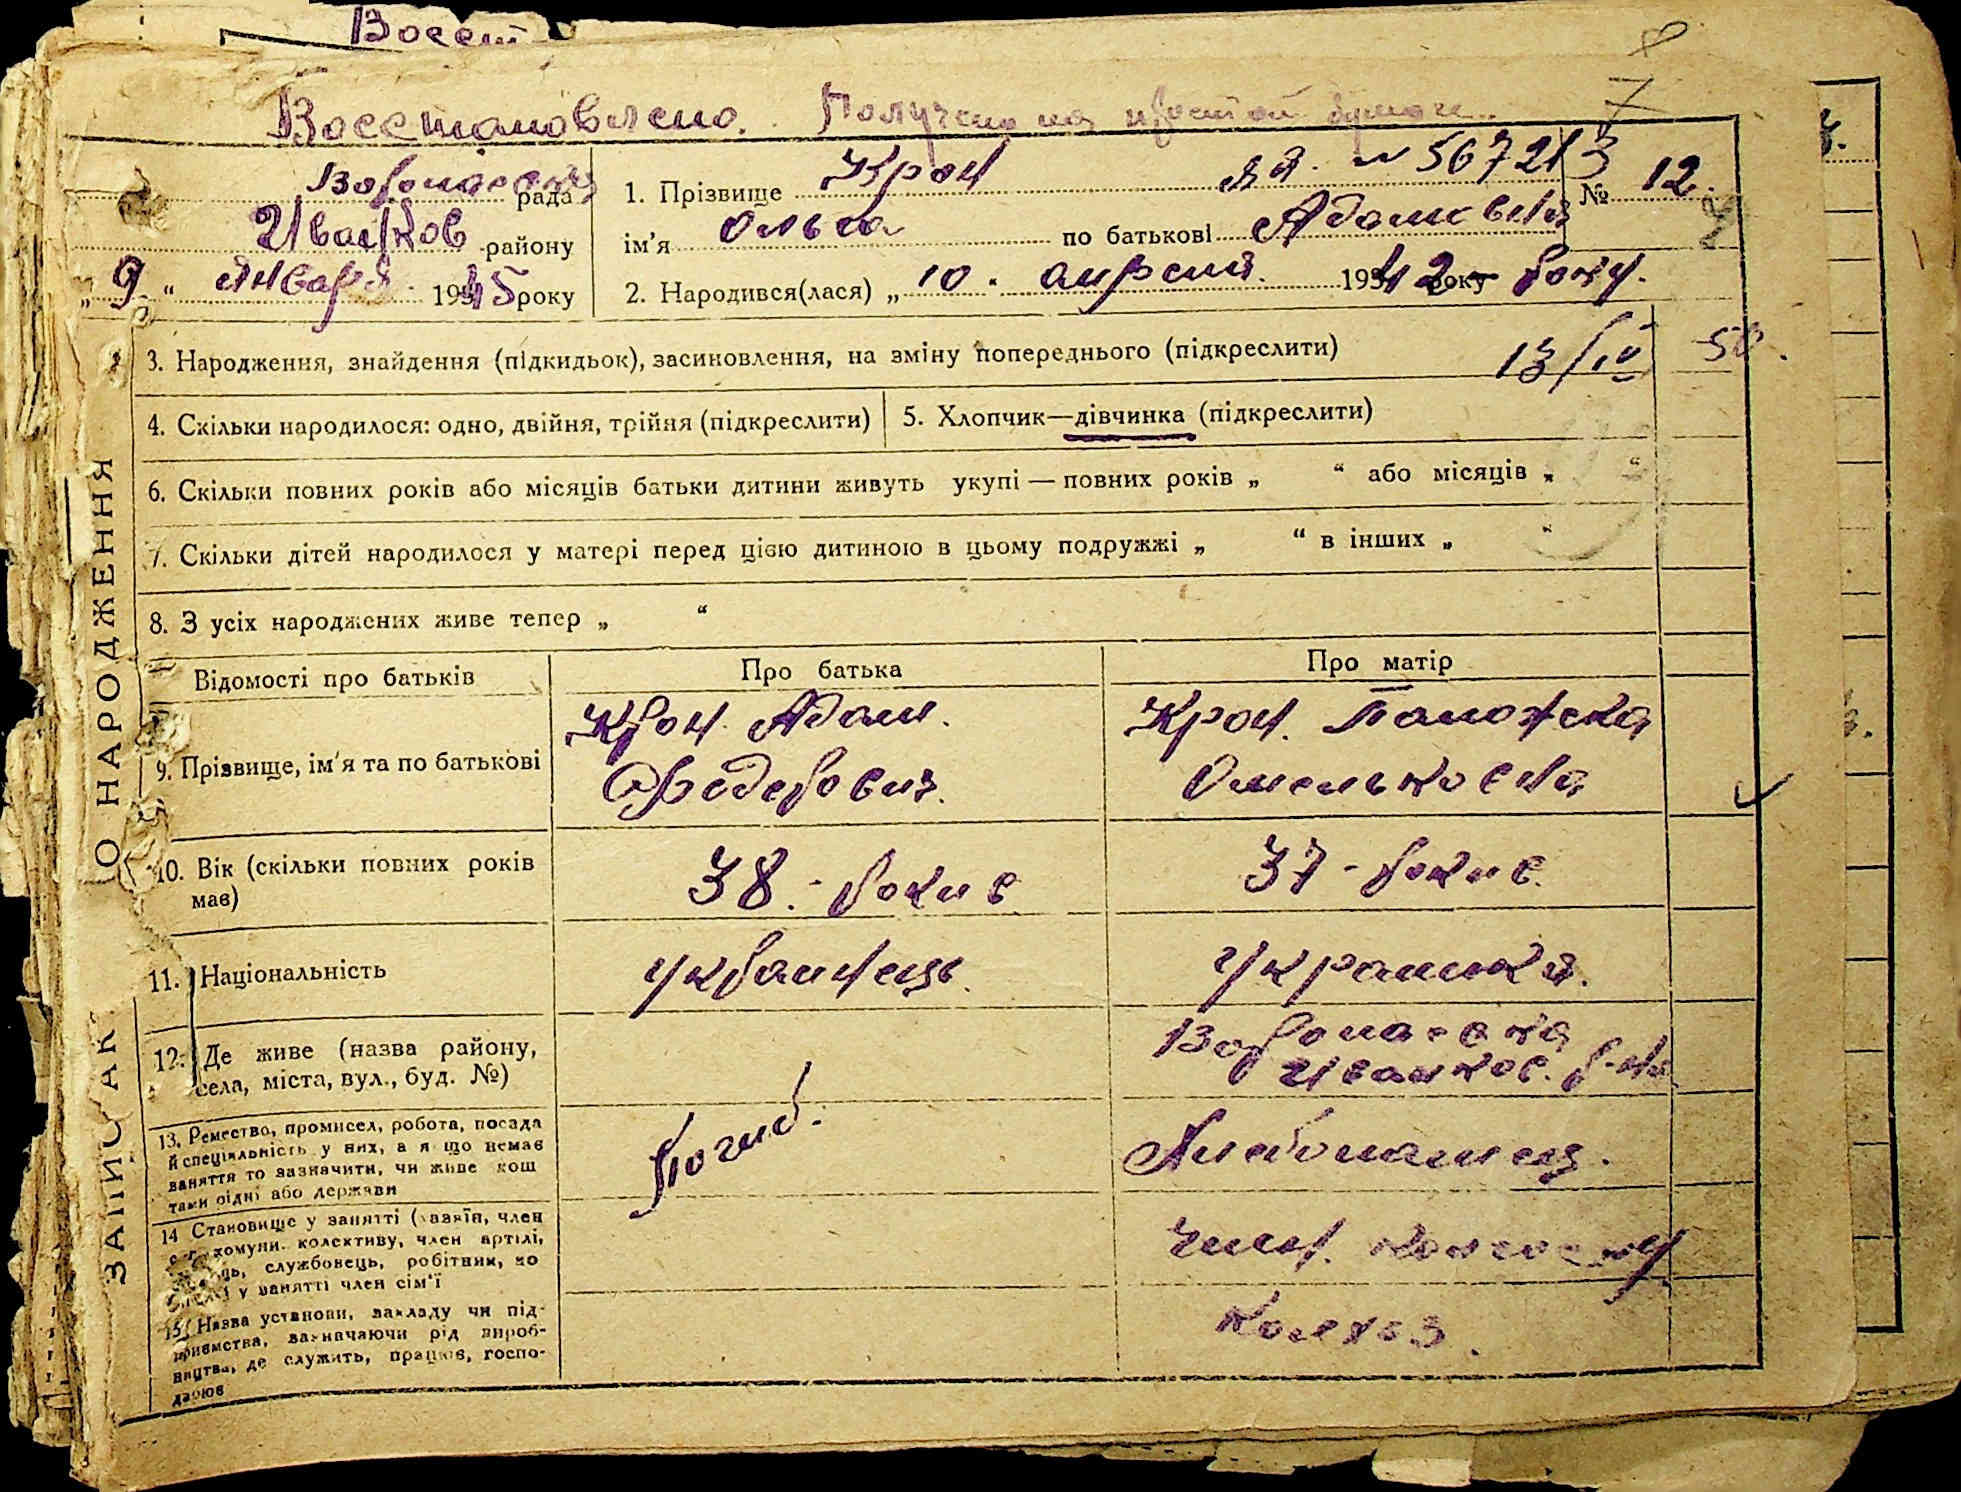 Восст
Восстановлено. Получено на простой бумаге.
рада
Иванков району
„ 9 “ Января 1945 року
1. Прізвище Крот
№ 567213
№ 12.
ім'я Ольга по батькові Адамівна
2. Народився(лася) „ 10. апреля. 1942 року
3. Народження, знайдення (підкидьок), засиновлення, на зміну попереднього (підкреслити)
13/IV 50.
4. Скільки народилося: одно, двійня, трійня (підкреслити)
5. Хлопчик—дівчинка (підкреслити)
6. Скільки повних років або місяців батьки дитини живуть укупі — повних років „ “ або місяців „ “
7. Скільки дітей народилося у матері перед цією дитиною в цьому подружжі „ “ в інших „ “
8. З усіх народжених живе тепер „ “
Відомості про батьків
Про батька
Про матір
9. Прізвище, ім'я та по батькові
Крот. Адам.
Федорович.
Крот.
Омельковна
10. Вік (скільки повних років
має)
38. рокив
37 - рокив.
11. Національність
украинець.
украинка.
12. Де живе (назва району,
села, міста, вул., буд. №)
Иванков. р-на
13. Ремество, промисел, робота, посада
й спеціяльність у них, а якщо немає
заняття то зазначити, чи живе кош
тами рідні або держави
Погиб.
Хлебопашец.
14 Становище у занятті (хазяїн, член
комуни. колективу, член артілі,
службовець, робітник, по
у занятті член сім'ї
член. колгоспу
15. Назва установи, закладу чи під-
приємства, зазначаючи рід вироб-
ництва, де служить, працює, госпо-
дарює
Колхоз.
ЗАПИС АКТ О НАРОДЖЕННЯ